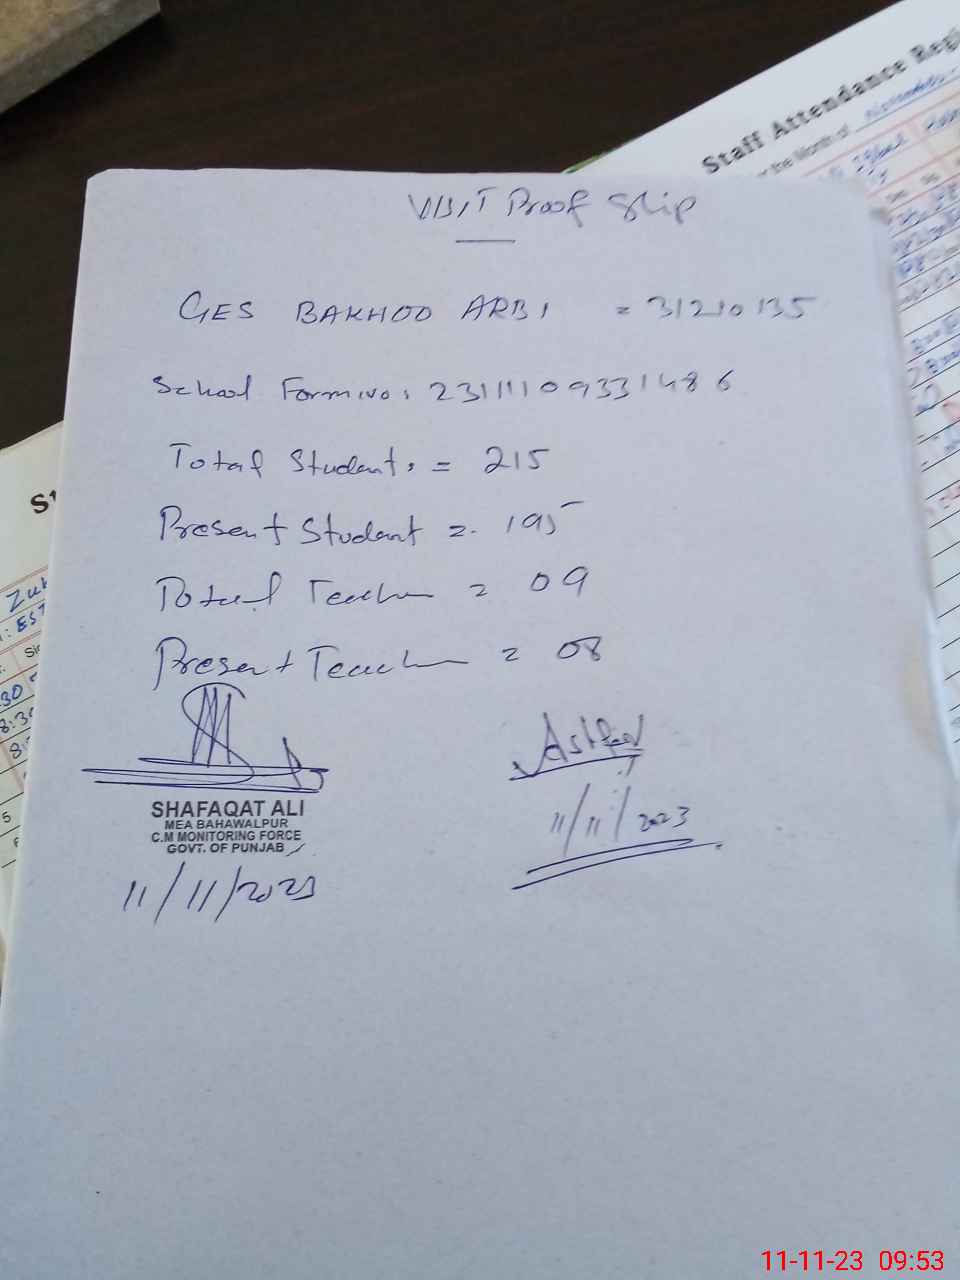 Visit Proof Slip
GES BAKHOO ARBI = 31210135
School Form No: 23111109331486
Total Students = 215
Present Student = 195
Total Teacher = 09
Present Teacher = 08
SHAFAQAT ALI
MEA BAHAWALPUR
C.M MONITORING FORCE
GOVT. OF PUNJAB
11/11/2023
11/11/2023
Staff Attendance Regi
the Month of
St
Zuk
: EST
11-11-23 09:53